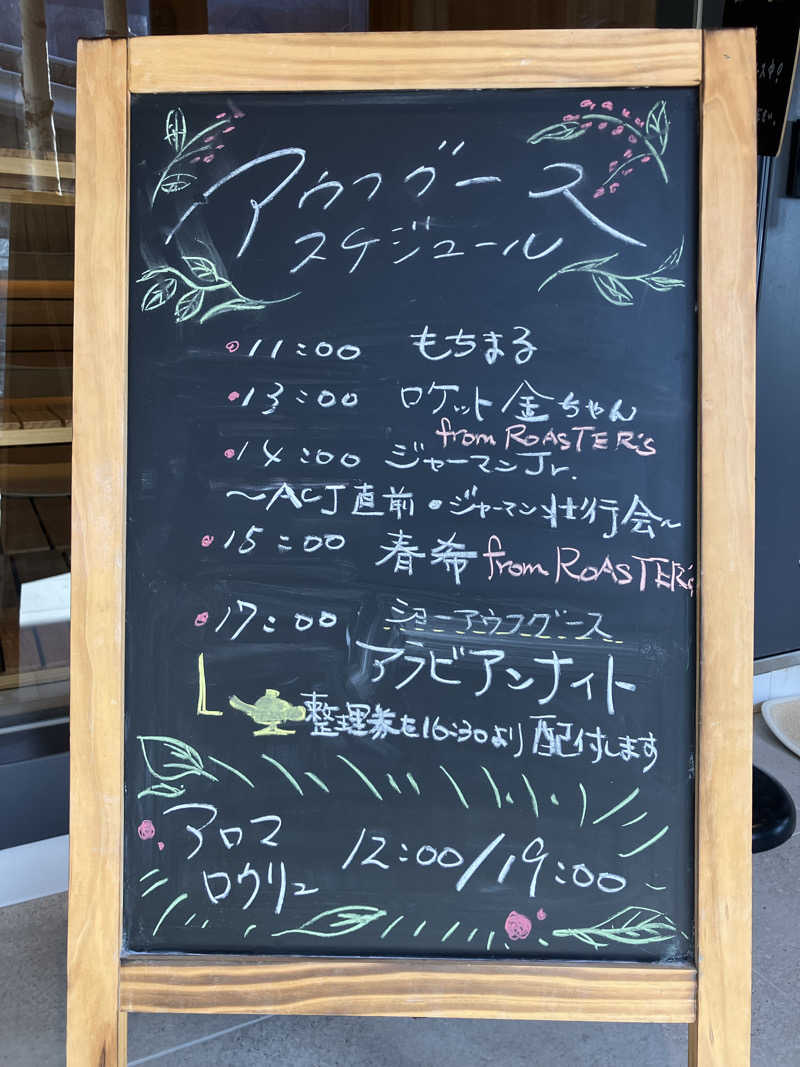 アウフグース
スケジュール
11:00 もちまる
13:00 ロケット金ちゃん
from ROASTER'S
14:00 ジャーマンJr.
〜ACJ直前・ジャーマン壮行会〜
15:00 春希 from ROASTER'S
17:00 ショーアウフグース
アラビアンナイト
整理券を16:30より配付します
アロマ
ロウリュ 12:00/19:00